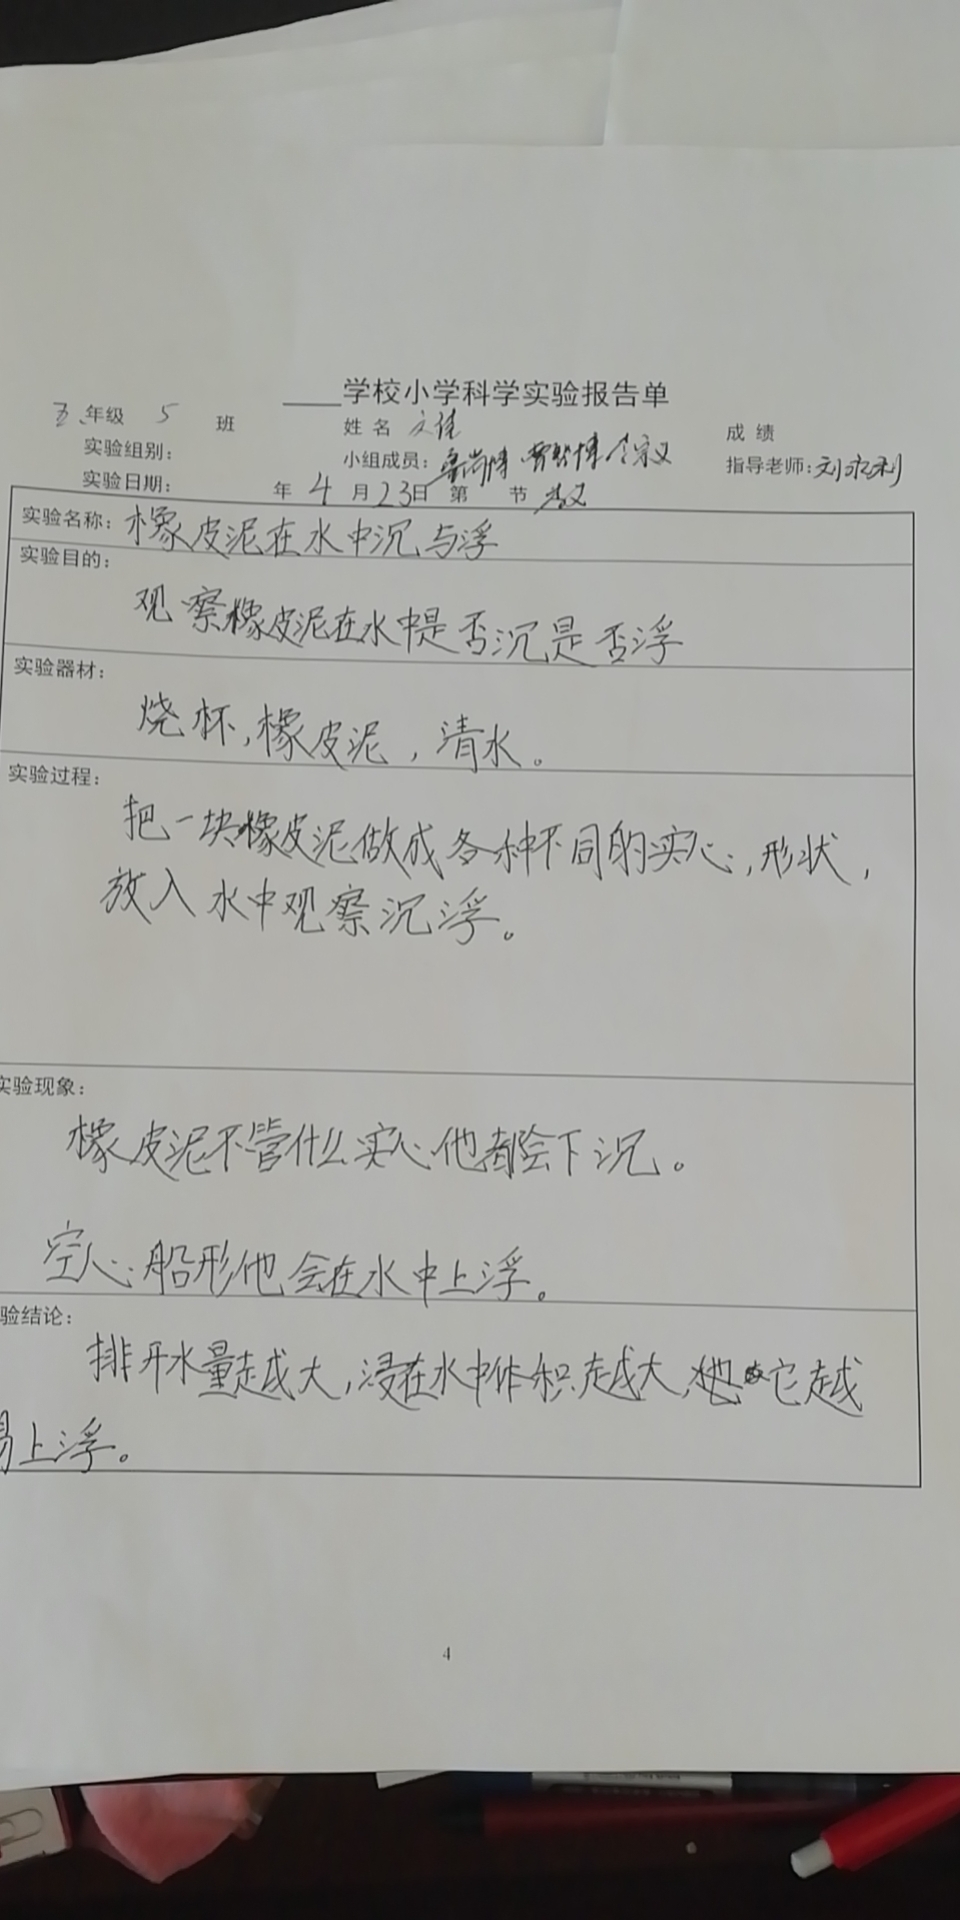 学校小学科学实验报告单
五年级 5 班 姓名 文倩 成绩
实验组别： 小组成员： 指导老师：刘永利
实验日期： 年 4 月 23日 第 节
实验名称：橡皮泥在水中沉与浮
实验目的：
观察橡皮泥在水中是否沉是否浮
实验器材：
烧杯，橡皮泥，清水。
实验过程：
把一块橡皮泥做成各种不同的实心，形状，
放入水中观察沉浮。
实验现象：
橡皮泥不管什么实心他都会下沉。
空心船形他会在水中上浮。
验结论：
排开水量越大，浸在水中体积越大，它越
易上浮。
4